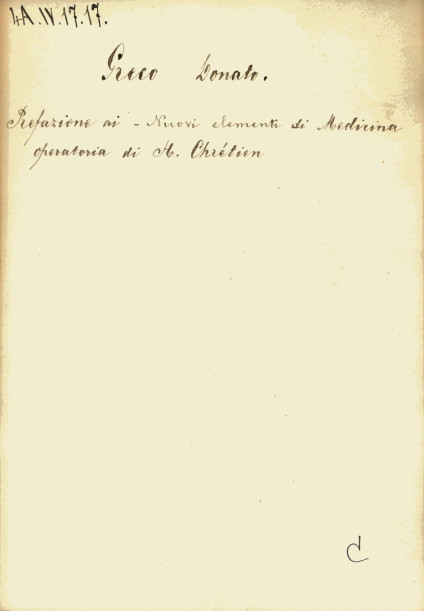 4A.IV.17.17.
Greco Donato.
Prefazione ai - Nuovi elementi di Medicina
operatoria di H. Chrétien
C